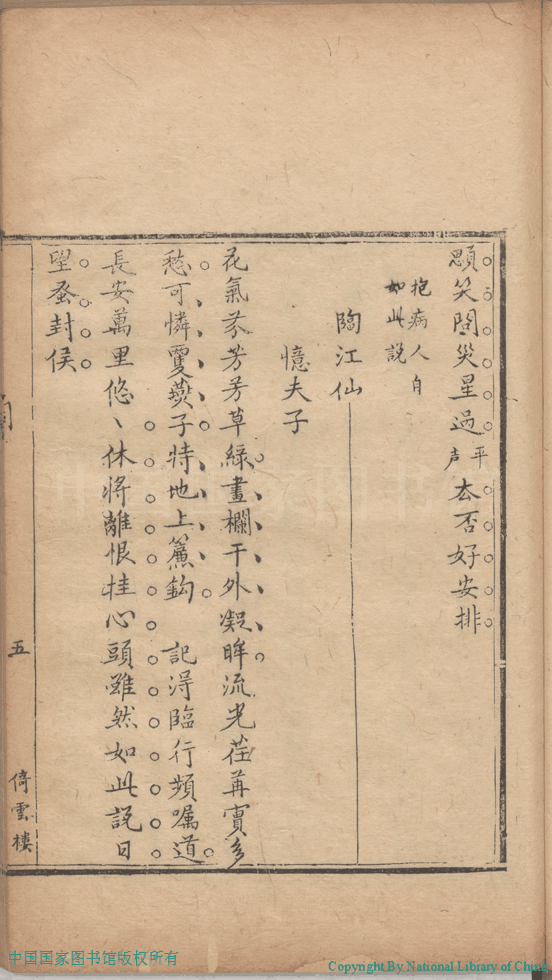 顋笑問災星過平声去否好安排
抱病人自
如此説
臨江仙
憶夫子
花氣芬芳芳草綠畫欄干外凝眸流光荏苒實多
愁可憐雙燕子特地上簾鈎 記淂臨行頻嘱道
長安萬里悠〻休將離恨挂心頭雖然如此説日
望蚤封侯
五
倚雲樓
中国国家图书馆版权所有
Copyright By National Library of China